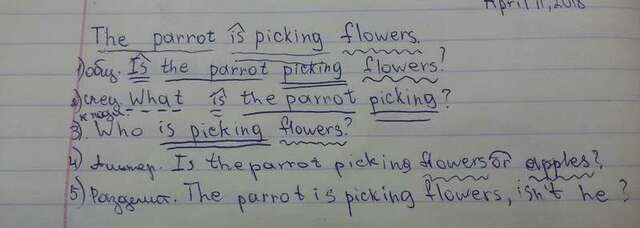 April 11, 2018
The parrot is picking flowers.
1) общ. Is the parrot picking flowers?
2) спец. What is the parrot picking?
к подл.
3). Who is picking flowers?
4) Альтер. Is the parrot picking flowers or apples?
5) Разделит. The parrot is picking flowers, isn't he?